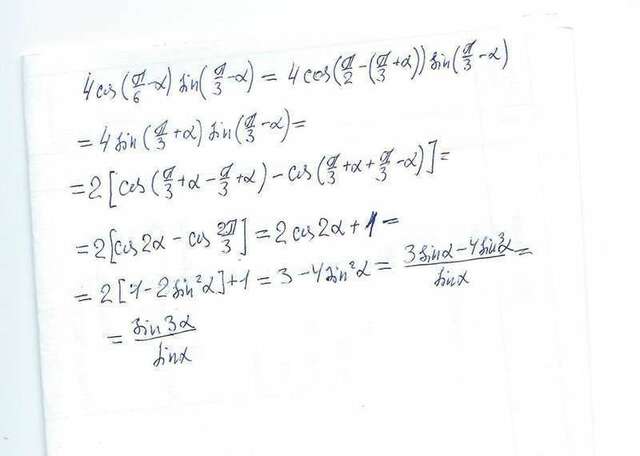 4cos(π/6-α)sin(π/3-α) = 4cos(π/2-(π/3+α))sin(π/3-α)
= 4sin(π/3+α)sin(π/3-α)=
=2[cos(π/3+α-π/3+α)-cos(π/3+α+π/3-α)]=
=2[cos2α-cos 2π/3]=2cos2α+1=
=2[1-2sin²α]+1=3-4sin²α= (3sinα-4sin³α)/sinα =
= sin3α/sinα